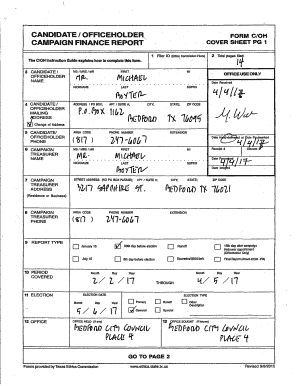 CANDIDATE / OFFICEHOLDER FORM C/OH
CAMPAIGN FINANCE REPORT COVER SHEET PG 1
The C/OH Instruction Guide explains how to complete this form.
1 Filer ID (Ethics Commission Filers)
2 Total pages filed:
14
3 CANDIDATE / OFFICEHOLDER NAME
MS / MRS / MR FIRST MI
MR. MICHAEL
NICKNAME LAST SUFFIX
BOYTER
OFFICE USE ONLY
Date Received
4/4/17
4 CANDIDATE / OFFICEHOLDER MAILING ADDRESS
Change of Address
ADDRESS / PO BOX; APT / SUITE #; CITY; STATE; ZIP CODE
P.O. BOX 1162
BEDFORD TX 76095
5 CANDIDATE / OFFICEHOLDER PHONE
AREA CODE PHONE NUMBER EXTENSION
(817) 247-6067
Date Hand-delivered or Date Postmarked
4/4/17
6 CAMPAIGN TREASURER NAME
MS / MRS / MR FIRST MI
MR. MICHAEL
NICKNAME LAST SUFFIX
BOYTER
Receipt # Amount
Date Processed
4/4/17
Date Imaged
7 CAMPAIGN TREASURER ADDRESS
(Residence or Business)
STREET ADDRESS (NO PO BOX PLEASE); APT / SUITE #; CITY; STATE; ZIP CODE
3217 SAPPHIRE ST. BEDFORD TX 76021
8 CAMPAIGN TREASURER PHONE
AREA CODE PHONE NUMBER EXTENSION
(817) 247-6067
9 REPORT TYPE
January 15 30th day before election Runoff 15th day after campaign treasurer appointment (Officeholder Only)
July 15 8th day before election Exceeded $500 limit Final Report (Attach C/OH - FR)
10 PERIOD COVERED
Month Day Year Month Day Year
2/2/17 THROUGH 4/5/17
11 ELECTION
ELECTION DATE ELECTION TYPE
Month Day Year
5/6/17
Primary Runoff Other Description
General Special
12 OFFICE
OFFICE HELD (if any)
BEDFORD CITY COUNCIL
PLACE 4
13 OFFICE SOUGHT (if known)
BEDFORD CITY COUNCIL
PLACE 4
GO TO PAGE 2
Forms provided by Texas Ethics Commission www.ethics.state.tx.us Revised 9/8/2015